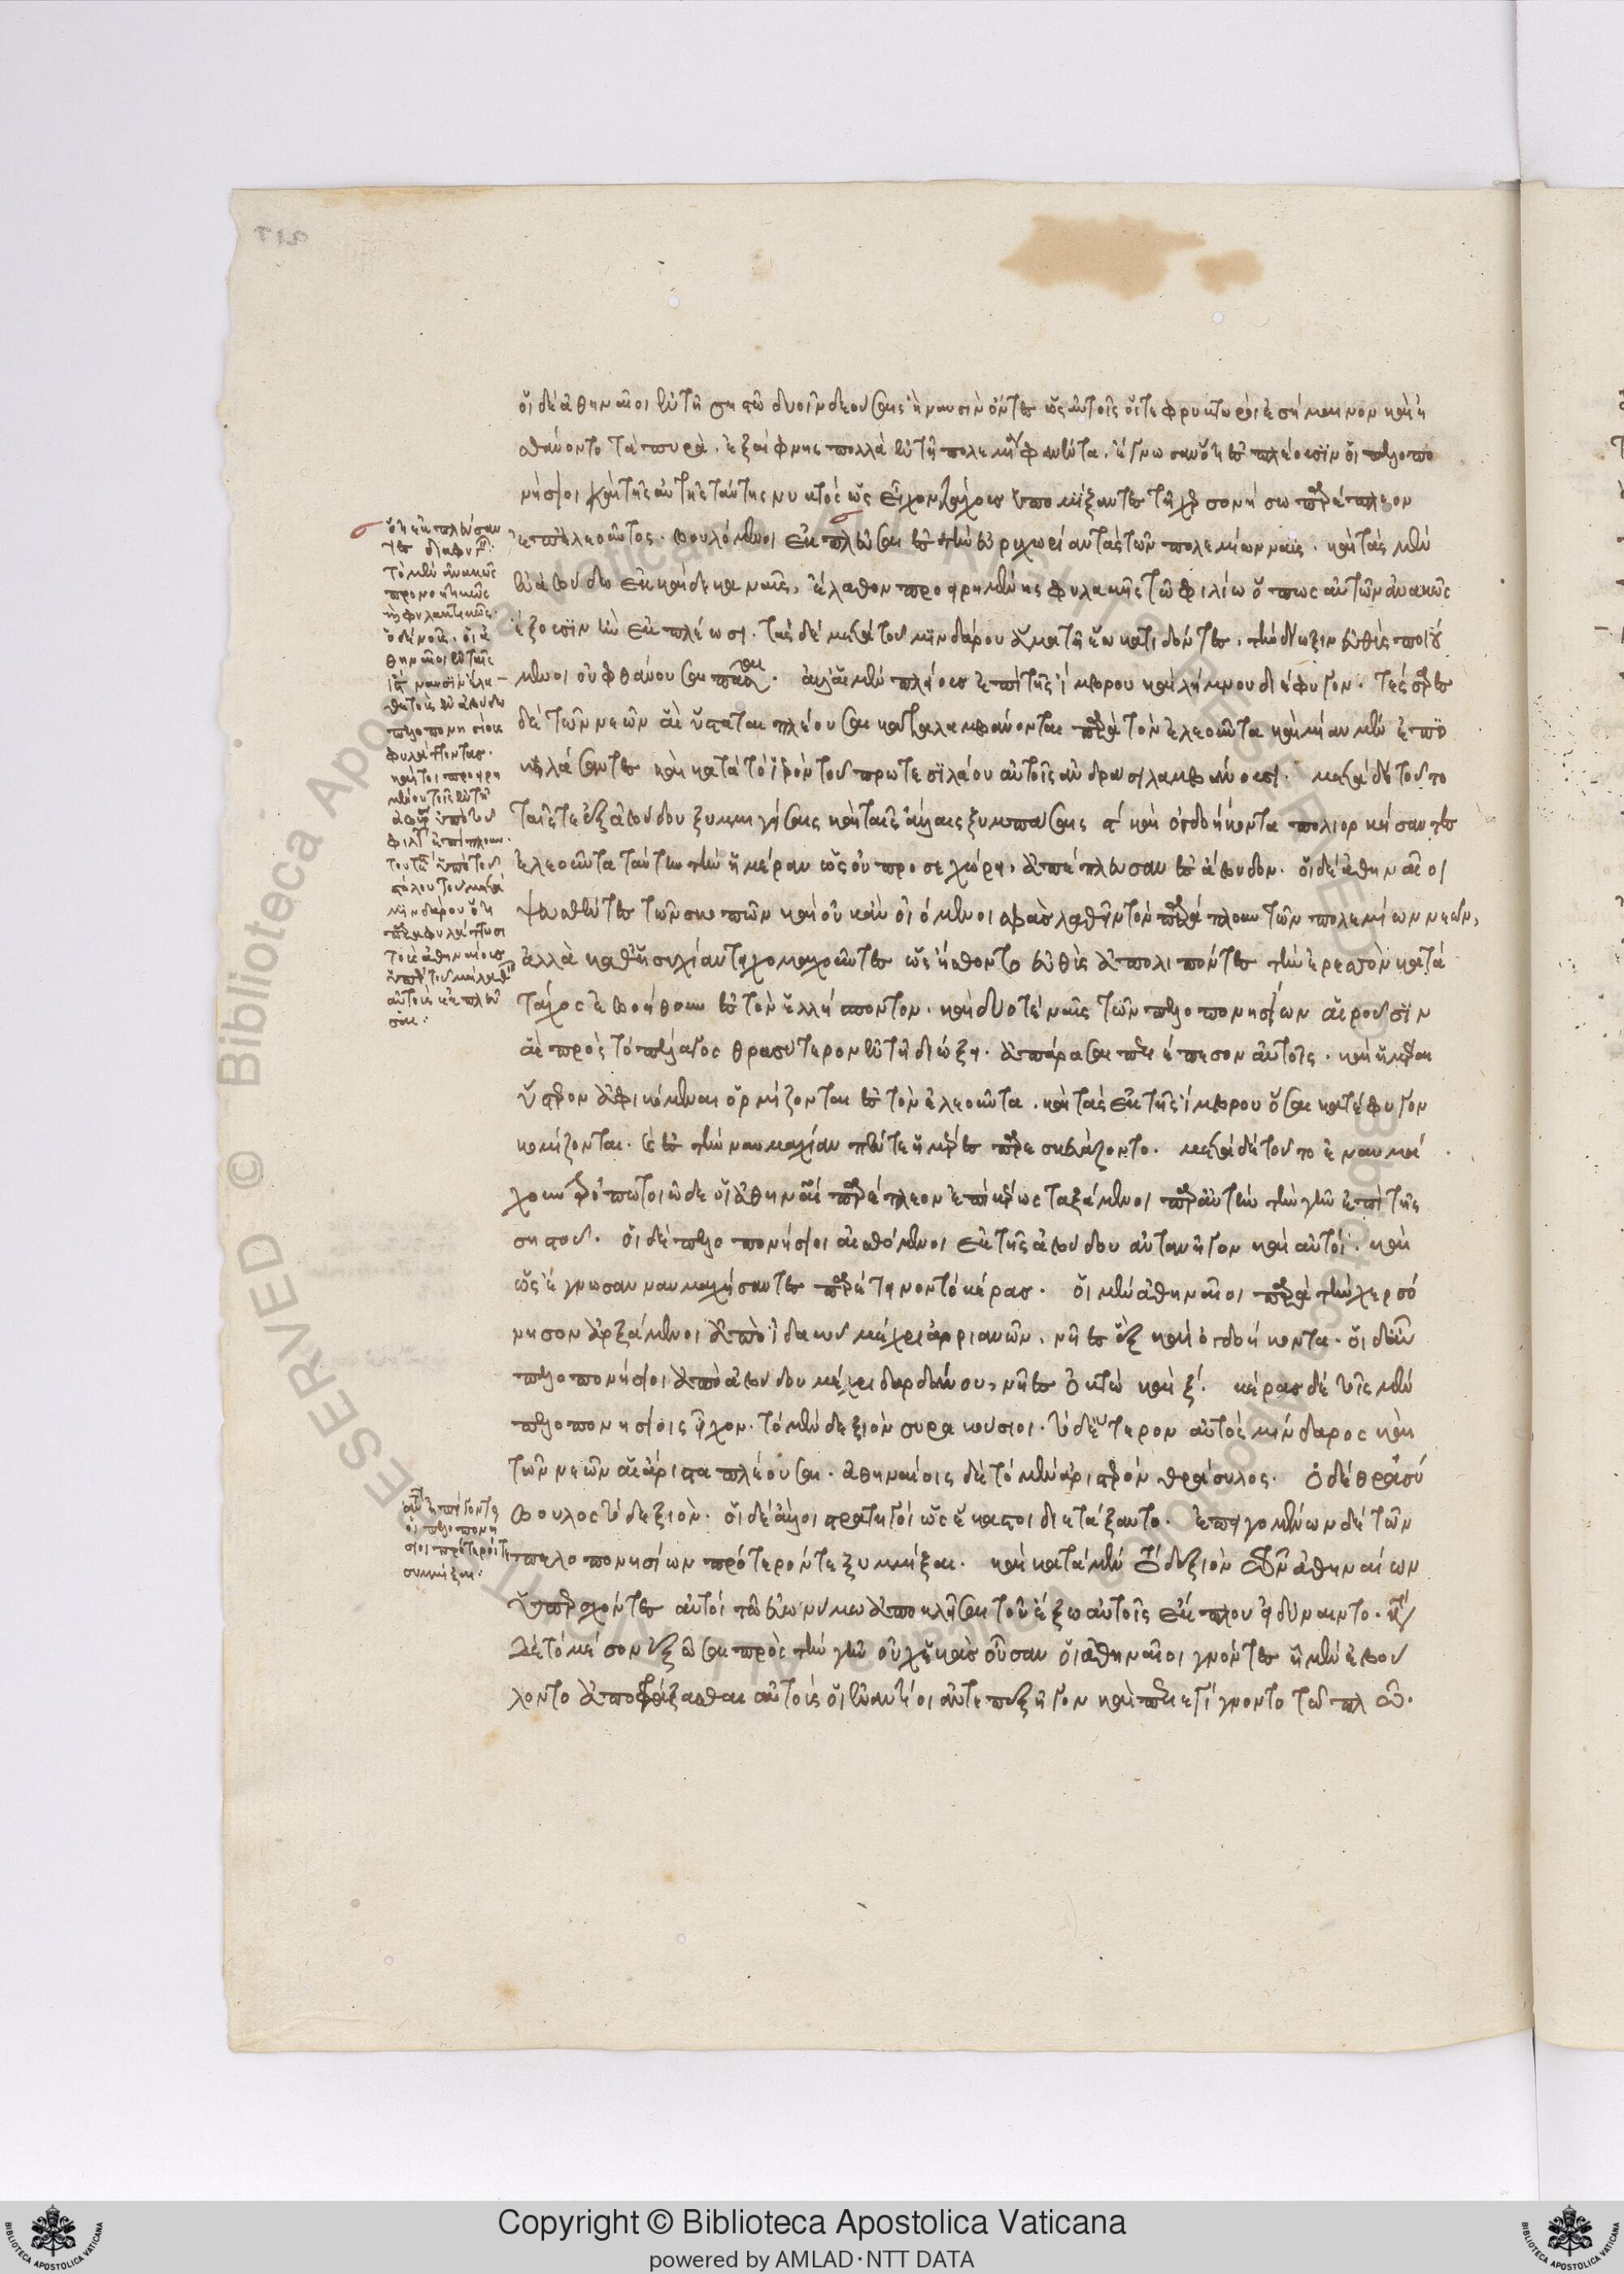 οἱ δὲ ἀθηναῖοι ἐν τῇ σηστῷ δυοῖν δεούσαις εἴκοσι ναυσὶν ὄντες ὡς αὐτοῖς οἵ τε φρυκτωροὶ ἐσήμαινον καὶ ἠ
σθάνοντο τὰ πυρὰ ἐξαίφνης πολλὰ ἐν τῇ πολεμίᾳ φανέντα, ἔγνωσαν ὅτι ἐσπλέουσιν οἱ πελοπο
νήσιοι. καὶ τῆς αὐτῆς ταύτης νυκτὸς ὡς εἶχον τάχους ὑπομίξαντες τῇ χερσονήσω παρέπλεον
ἐπ' ἐλεοῦντος. βουλόμενοι ἐκπλεῦσαι ἐς τὴν εὐρυχωρίαν τὰς τῶν πολεμίων ναῦς. καὶ τὰς μὲν
ἐν ἀβύδω ἑκκαίδεκα ναῦς, ἔλαθον προειρημένης φυλακῆς τῷ φιλίω ὅπως αὐτῶν ἀνακῶς
ἕξουσιν ἢν ἐκπλέωσι. τὰς δὲ μετὰ τοῦ μινδάρου ἅμα τῇ ἕω κατιδόντες, τὴν δίωξιν εὐθὺς ποιού
μενοι οὐ φθάνουσι πᾶσαι. ἀλλ' αἱ μὲν πλείους ἐπὶ τῆς ἴμβρου καὶ λήμνου διέφυγον. τέσσαρες
δὲ τῶν νεῶν αἱ ὕσταται πλέουσαι καταλαμβάνονται παρὰ τὸν ἐλεοῦντα καὶ μίαν μὲν ἐπο
κείλασαν κατὰ τὸ ἱερὸν τοῦ πρωτεσιλάου αὐτοῖς ἀνδράσι λαμβάνουσι. μετὰ δὲ τοῦτο
ταῖς τε ἐξ ἀβύδου ξυμμιγείσαις καὶ ταῖς ἄλλαις ξυμπάσαις ϛ καὶ ὀγδοήκοντα πολιορκήσαντες
ἐλεοῦντα ταύτην τὴν ἡμέραν ὡς οὐ προσεχώρει, ἀπέπλευσαν ἐς ἄβυδον. οἱ δὲ ἀθηναῖοι
ψευσθέντες τῶν σκοπῶν καὶ οὐκ ἂν οἰόμενοι σφᾶς λαθεῖν τὸν παράπλουν τῶν πολεμίων νεῶν,
ἀλλὰ καθ' ἡσυχίαν τειχομαχοῦντες ὡς ᾔσθοντο εὐθὺς ἀπολιπόντες τὴν ἔρεσον κατὰ
τάχος ἐβοήθουν ἐς τὸν ἑλλήσποντον. καὶ δύο τε ναῦς τῶν πελοπονησίων αἱροῦσιν
αἳ πρὸς τὸ πέλαγος θρασύτερον ἐν τῇ διώξει ἀπάρασαι περιέπεσον αὐτοῖς. καὶ ἡμέρα
ὕστερον ἀφικόμεναι ὁρμίζονται ἐς τὸν ἐλεοῦντα. καὶ τὰς ἐκ τῆς ἴμβρου ὅσαι κατέφυγον
κομίζονται. καὶ ἐς τὴν ναυμαχίαν πέντε ἡμέρας παρεσκευάζοντο. μετὰ δὲ τοῦτο ἐναυμά
χουν τρόπω τοιῷδε οἱ ἀθηναῖοι παρέπλεον ἐπὶ κέρως ταξάμενοι παρ' αὐτὴν τὴν γῆν ἐπὶ τῆς
σηστοῦ. οἱ δὲ πελοπονήσιοι αἰσθόμενοι ἐκ τῆς ἀβύδου ἀντανῆγον καὶ αὐτοί. καὶ
ὡς ἔγνωσαν ναυμαχήσαντες παρέτεινον τὸ κέρας. οἱ μὲν ἀθηναῖοι παρὰ τὴν χερσό
νησον ἀρξάμενοι ἀπὸ ἰδακοῦ μέχρι ἀρριανῶν, νῆες ἓξ καὶ ὀγδοήκοντα. οἱ δ' αὖ
πελοπονήσιοι ἀπὸ ἀβύδου μέχρι δαρδάνου, νῆες ὀκτὼ καὶ ξ. κέρας δὲ τοῖς μὲν
πελοπονησίοις εἶχον. τὸ μὲν δεξιὸν συρακούσιοι. τὸ δ' ἕτερον αὐτὸς μίνδαρος καὶ
τῶν νεῶν αἱ ἄριστα πλέουσαι. ἀθηναίοις δὲ τὸ μὲν ἀριστερὸν θράσυλος. ὁ δὲ θρασύ
βουλος τὸ δεξιόν. οἱ δὲ ἄλλοι στρατηγοί ὡς ἕκαστοι διετάξαντο. ἐπειγομένων δὲ τῶν
πελοπονησίων πρότερόν τε ξυμμίξαι. καὶ κατὰ μὲν τὸ δεξιὸν τῶν ἀθηναίων
ὑπερσχόντες αὐτοὶ τῷ εὐωνύμω ἀποκλῇσαι τοῦ ἔξω αὐτοῖς ἔκπλου εἰ δύναιντο. κατὰ
δὲ τὸ μέσον ἐξῶσαι πρὸς τὴν γῆν οὐχ ἑκὰς οὖσαν οἱ ἀθηναῖοι γνόντες ᾗ μὲν ἐβού
λοντο ἀποφάρξασθαι αὐτοὺς οἱ ἐναντίοι ἀντεπεξῆγον καὶ περιεγίγνοντο τῷ πλῷ.
ὅτι ἐκπλεύσαν
τες διαφύγοιεν.
τὸ μὲν ἀνακῶς
προνοητικῶς
καὶ φυλακτικῶς.
ὁ δὲ νοῦς. οἱ ἀ
θηναῖοι ἐν ταῖς
ναυσὶν ἔλα
θον τοὺς ἐν ἀβύδω
πελοπονησίους
φυλάττοντας.
καίτοι προειρη
μένου τοῖς ἐν τῇ
ἀβύδω ὑπὸ τοῦ
φιλίου ἐπίπλου.
τουτέστιν ὑπὸ τοῦ
στόλου τοῦ μετὰ
μινδάρου ὅτι
παραφυλάττουσι
τοὺς ἀθηναίους
ὑπὲρ τοῦ μὴ λαθεῖν
αὐτοὺς ἐκπλεύ
σαι.
ἐπείγοντο
οἱ πελοπονή
σιοι πρότεροί τε
συμμίξαι.
Copyright © Biblioteca Apostolica Vaticana
powered by AMLAD·NTT DATA